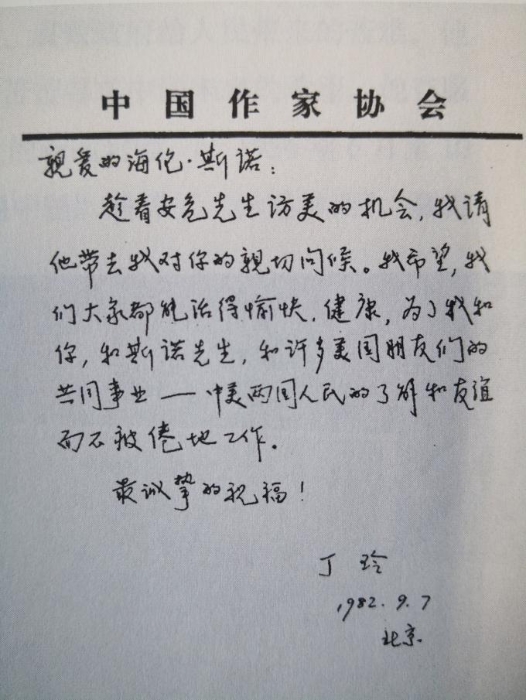 中国作家协会
亲爱的海伦·斯诺:
趁着安危先生访美的机会,我请
他带去我对你的亲切问候。我希望,我
们大家都能活得愉快、健康,为了我和
你,和斯诺先生,和许多美国朋友们的
共同事业——中美两国人民的了解和友谊
而不疲倦地工作。
最诚挚的祝福!
丁玲
1982.9.7
北京